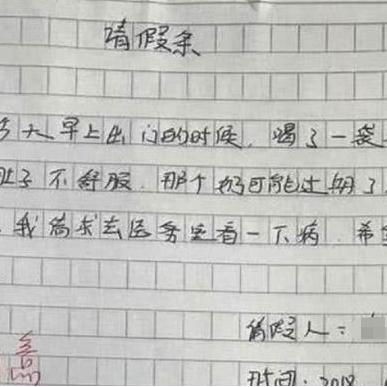 请假条
今天早上出门的时候,喝了一袋
肚子不舒服.那个奶可能过期了
.我需求去医务室看一下病.希
请假人:
时间:2018